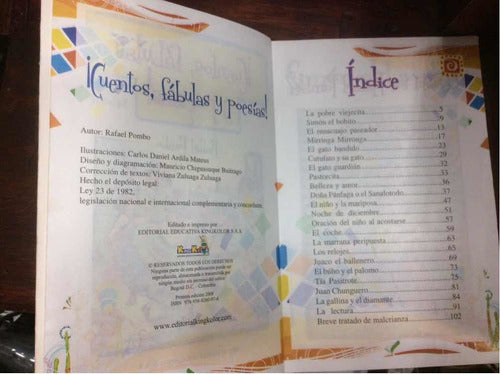 ¡Cuentos, fábulas y poesías!
Autor: Rafael Pombo
Ilustraciones: Carlos Daniel Ardila Mateus
Diseño y diagramación: Mauricio Chiquasuque Buitrago
Corrección de textos: Viviana Zuluaga Zuluaga
Hecho el depósito legal:
Ley 23 de 1982,
legislación nacional e internacional complementaria y concordante
Editado e impreso por
EDITORIAL EDUCATIVA KINGKOLOR S.A.S
KingKolor
© RESERVADOS TODOS LOS DERECHOS
Ninguna parte de esta publicación puede ser
reproducida, almacenada o transmitida por
ningún medio sin permiso del editor
Bogotá D.C. - Colombia
Primera edición 2008
www.editorialkingkolor.com
Índice
La pobre viejecita 5
Simón el bobito 9
El renacuajo paseador 13
Mirringa Mirronga 17
El gato bandido 23
Cutufato y su gato 29
El gato guardián 32
Pastorcita
Belleza y amor 36
Doña Pánfaga o el Sanalotodo 37
El niño y la mariposa 47
Noche de diciembre 51
Oración del niño al acostarse 57
El coche 59
La marrana peripuesta 63
Los relojes 65
Juaco el ballenero 69
El búho y el palomo 73
Tía Pasitrote 75
Juan Chunguero 81
La gallina y el diamante 84
La lectura 91
Breve tratado de malcrianza 102